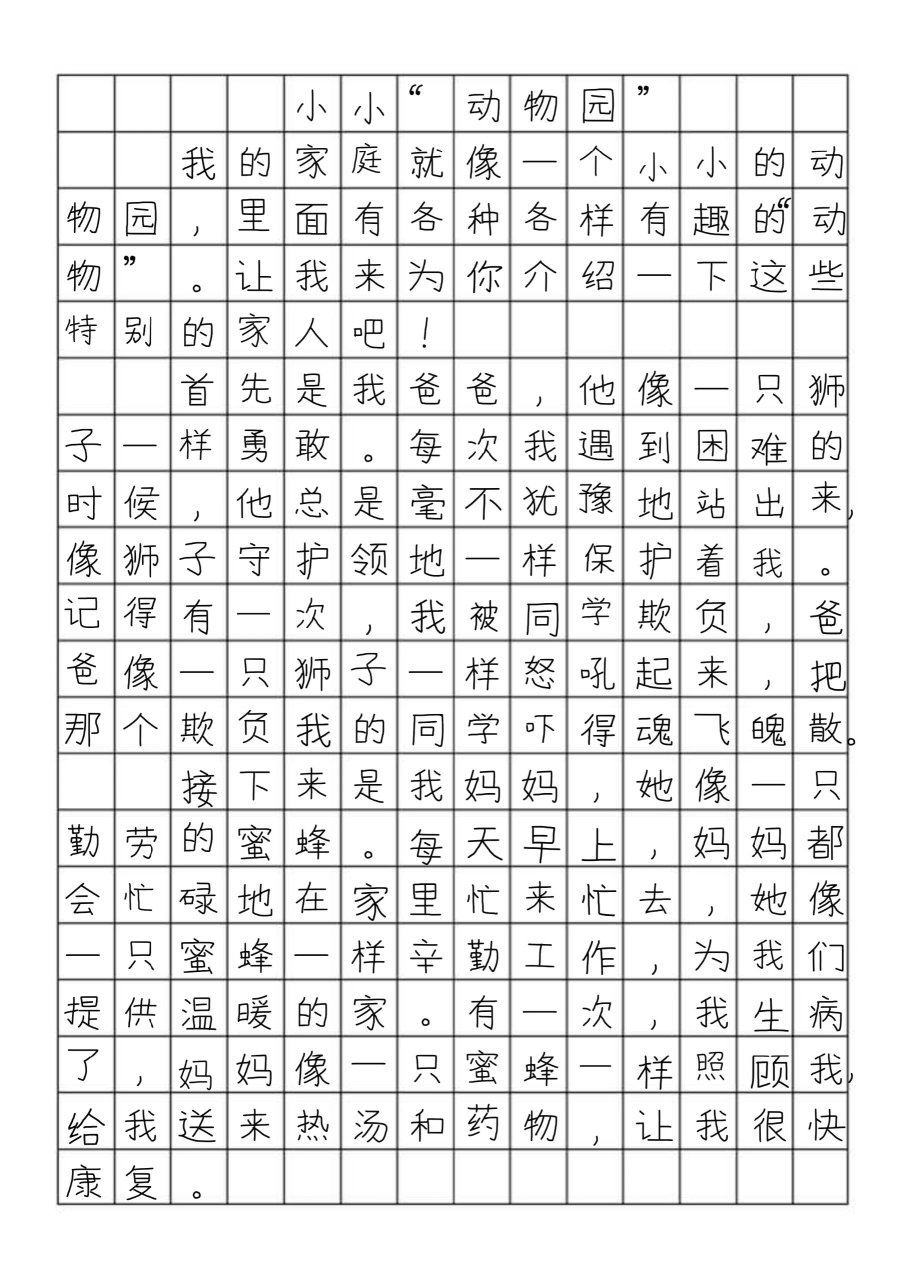 小小“动物园”
我的家庭就像一个小小的动
物园，里面有各种各样有趣的“动
物”。让我来为你介绍一下这些
特别的家人吧！
首先是我爸爸，他像一只狮
子一样勇敢。每次我遇到困难的
时候，他总是毫不犹豫地站出来，
像狮子守护领地一样保护着我。
记得有一次，我被同学欺负，爸
爸像一只狮子一样怒吼起来，把
那个欺负我的同学吓得魂飞魄散。
接下来是我妈妈，她像一只
勤劳的蜜蜂。每天早上，妈妈都
会忙碌地在家里忙来忙去，她像
一只蜜蜂一样辛勤工作，为我们
提供温暖的家。有一次，我生病
了，妈妈像一只蜜蜂一样照顾我，
给我送来热汤和药物，让我很快
康复。